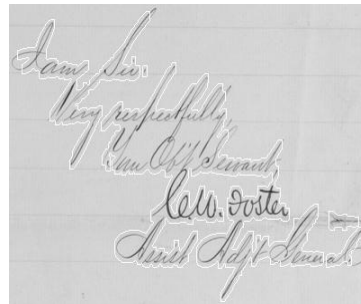 I am, Sir.
Very respectfully,
Your Obt Servant,
C.W. Foster
Assist Adjt General.